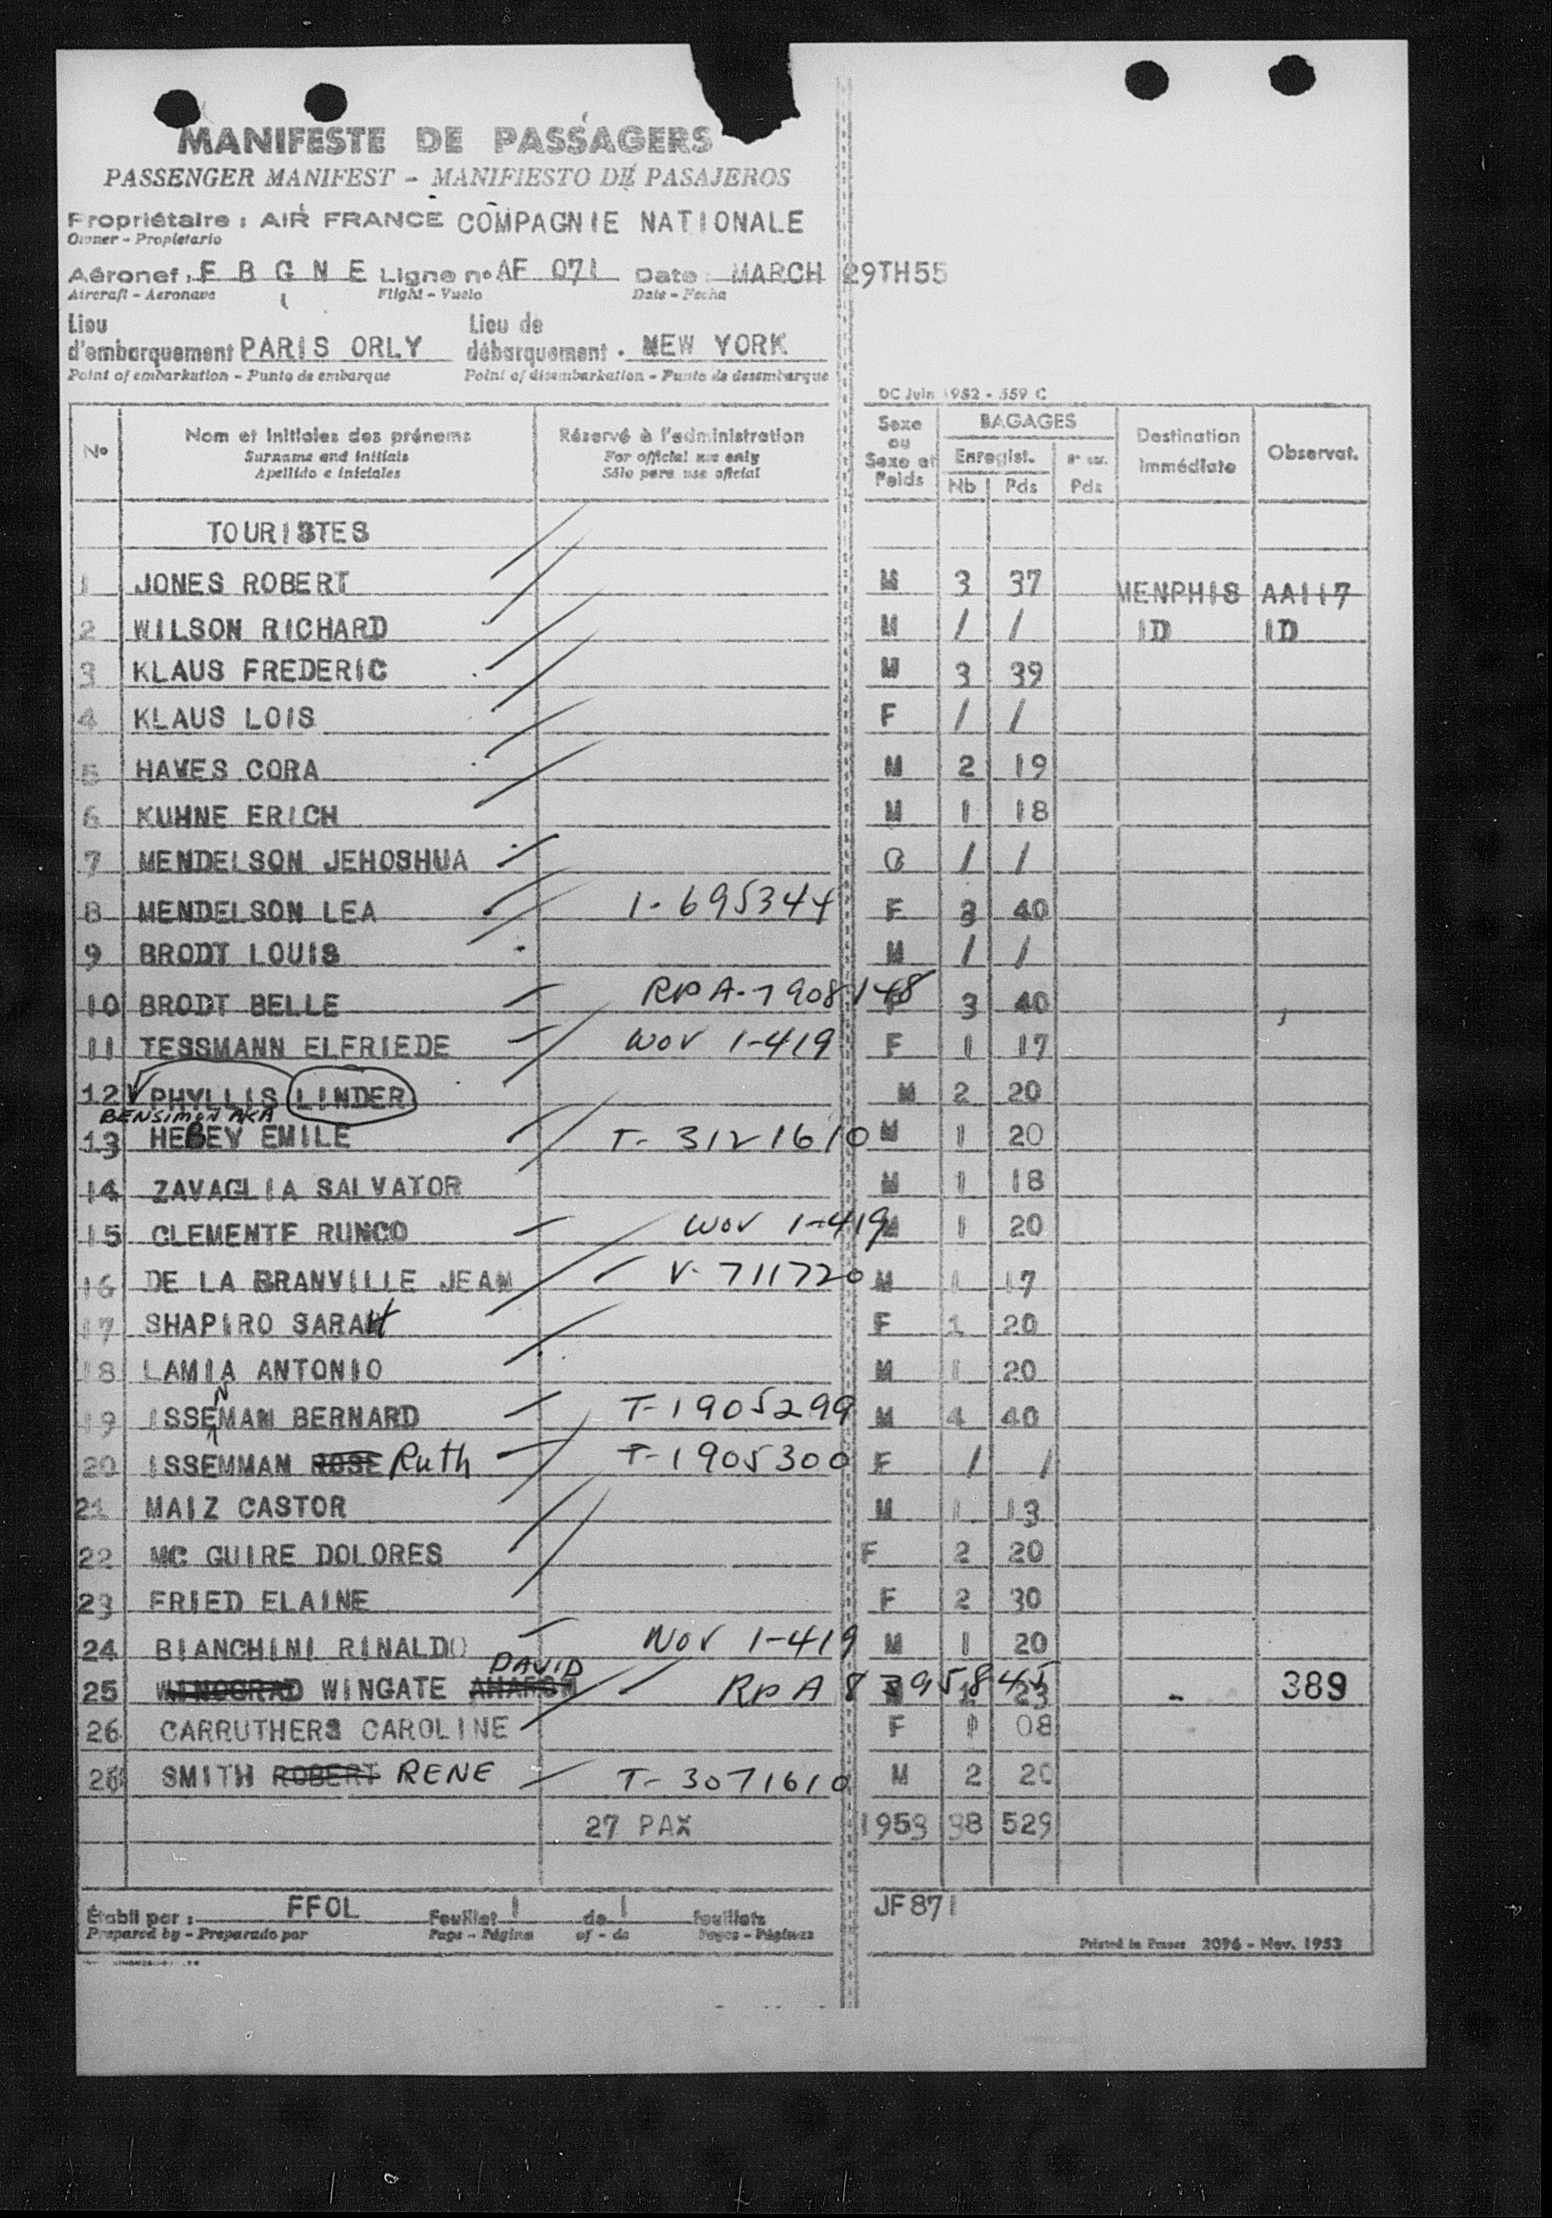 MANIFESTE DE PASSAGERS
PASSENGER MANIFEST - MANIFIESTO DE PASAJEROS
Propriétaire : AIR FRANCE COMPAGNIE NATIONALE
Owner - Propietario
Aéronef : F B G N E Ligne n° AF 071 Date : MARCH 29TH55
Aircraft - Aeronave Flight - Vuelo Date - Fecha
Lieu d'embarquement PARIS ORLY Lieu de débarquement . NEW YORK
Point of embarkation - Punto de embarque Point of disembarkation - Punto de desembarque
DC Juin 1952 - 559 C
N° Nom et initiales des prénoms Réservé à l'administration Sexe ou Sexe et Poids BAGAGES Destination immédiate Observat.
Surname and initials For official use only Enregist.
Apellido e iniciales Sólo para uso oficial Nb Pds Pds
TOURISTES
1 JONES ROBERT M 3 37 MENPHIS AA117
2 WILSON RICHARD M / / ID ID
3 KLAUS FREDERIC M 3 39
4 KLAUS LOIS F / /
5 HAVES CORA M 2 19
6 KUHNE ERICH M 1 18
7 MENDELSON JEHOSHUA C / /
8 MENDELSON LEA 1-695344 F 3 40
9 BRODT LOUIS M / /
10 BRODT BELLE RPA-7908148 F 3 40
11 TESSMANN ELFRIEDE WOV 1-419 F 1 17
12 PHYLLIS LINDER M 2 20
BENSIMON AKA
13 HEBEY EMILE T-3121610 M 1 20
14 ZAVAGLIA SALVATOR M 1 18
15 CLEMENTE RUNCO WOV 1-419 M 1 20
16 DE LA BRANVILLE JEAN V-711720 M 1 17
17 SHAPIRO SARAH F 1 20
18 LAMIA ANTONIO M 1 20
N
19 ISSEMAN BERNARD T-1905299 M 4 40
20 ISSEMMAN ROSE Ruth T-1905300 F / /
21 MAIZ CASTOR M 1 13
22 MC GUIRE DOLORES F 2 20
23 FRIED ELAINE F 2 30
24 BIANCHINI RINALDO WOV 1-419 M 1 20
DAVID
25 WINOGRAD WINGATE AHARON RPA 8395845 1 23 - 389
26 CARRUTHERS CAROLINE F 1 08
26 SMITH ROBERT RENE T-3071610 M 2 20
27 PAX 1953 38 529
Établi par : FFOL Feuillet 1 de 1 feuillets JF871
Prepared by - Preparado por Page - Página of - de Pages - Páginas Printed in France 2096 - Nov. 1953